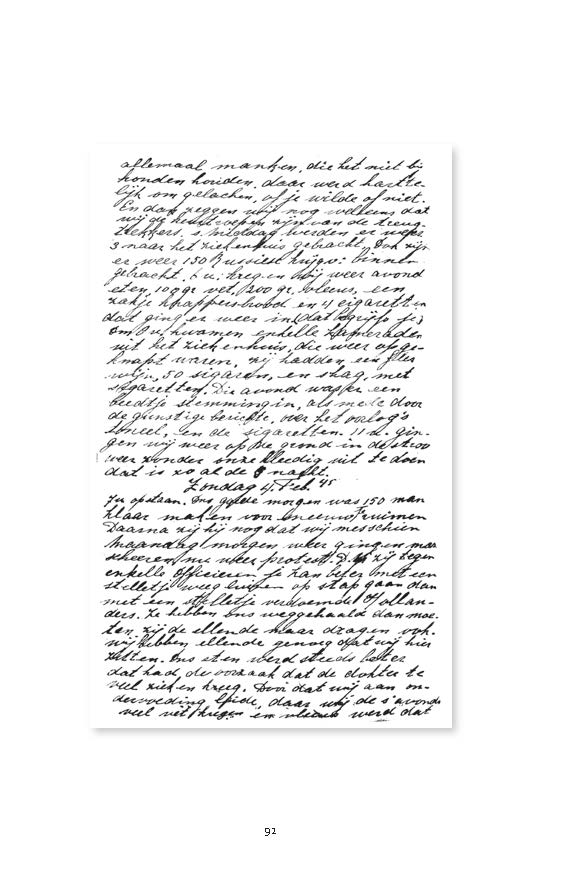 allemaal manken, die het niet bij
honden houden. daar werd harte-
lijk om gelachen, of je wilde of niet.
En dan zeggen wij nog welleens dat
wij de van de terug-
trekkers. s'middag werden er weer
3 naar het ziekenhuis gebracht, Ook zijn
er weer 150 Russiese krijgv: binnen
gebracht. 6 u: kregen wij weer avond
eten, 100 gr vet, 200 gr. vlees, een
zakje knappersbrood en 4 eigaretten
dat ging er weer in (dat begrijp je)
Om 8 u, kwamen enkelle Kameraden
uit het ziekenhuis, die weer opge-
knapt waren, zij hadden een fles
wijn, 50 sigaren, en shag, met
sigaretten. Die avond was er een
beetje stemming in, als mede door
de gunstige berichte, over het oorlog's
toneel, en de sigaretten. 11 u. gin-
gen wij weer op de grond in de stroo
weer zonder onze kleedig uit te doen
dat is zo al de 8 nacht.
Zondag 4. Feb. 45
7 u opstaan. Ons goede morgen was 150 man
klaar maken voor sneeuw ruimen
Daarna zij hij nog dat wij messchien
Maandag morgen, weer gingen mar
scheeren, nu weer protest. zij tegen
enkelle Officieren je kan beter met een
stelletje op stap gaan dan
met een stelletje verdoemde Hollan-
ders. Ze hebben ons weggehaald dan moe-
ten zij de ellende maar dragen ook.
wij hebben ellende genoeg dat wij hier
zitten. Ons eten werd steeds beter
dat had, de oorzaak dat de dokter te
veel zieken kreeg. Door dat wij aan on-
dervoeding lijde, daar wij de s'avonds
veel vet kregen en vlees werd dat
92